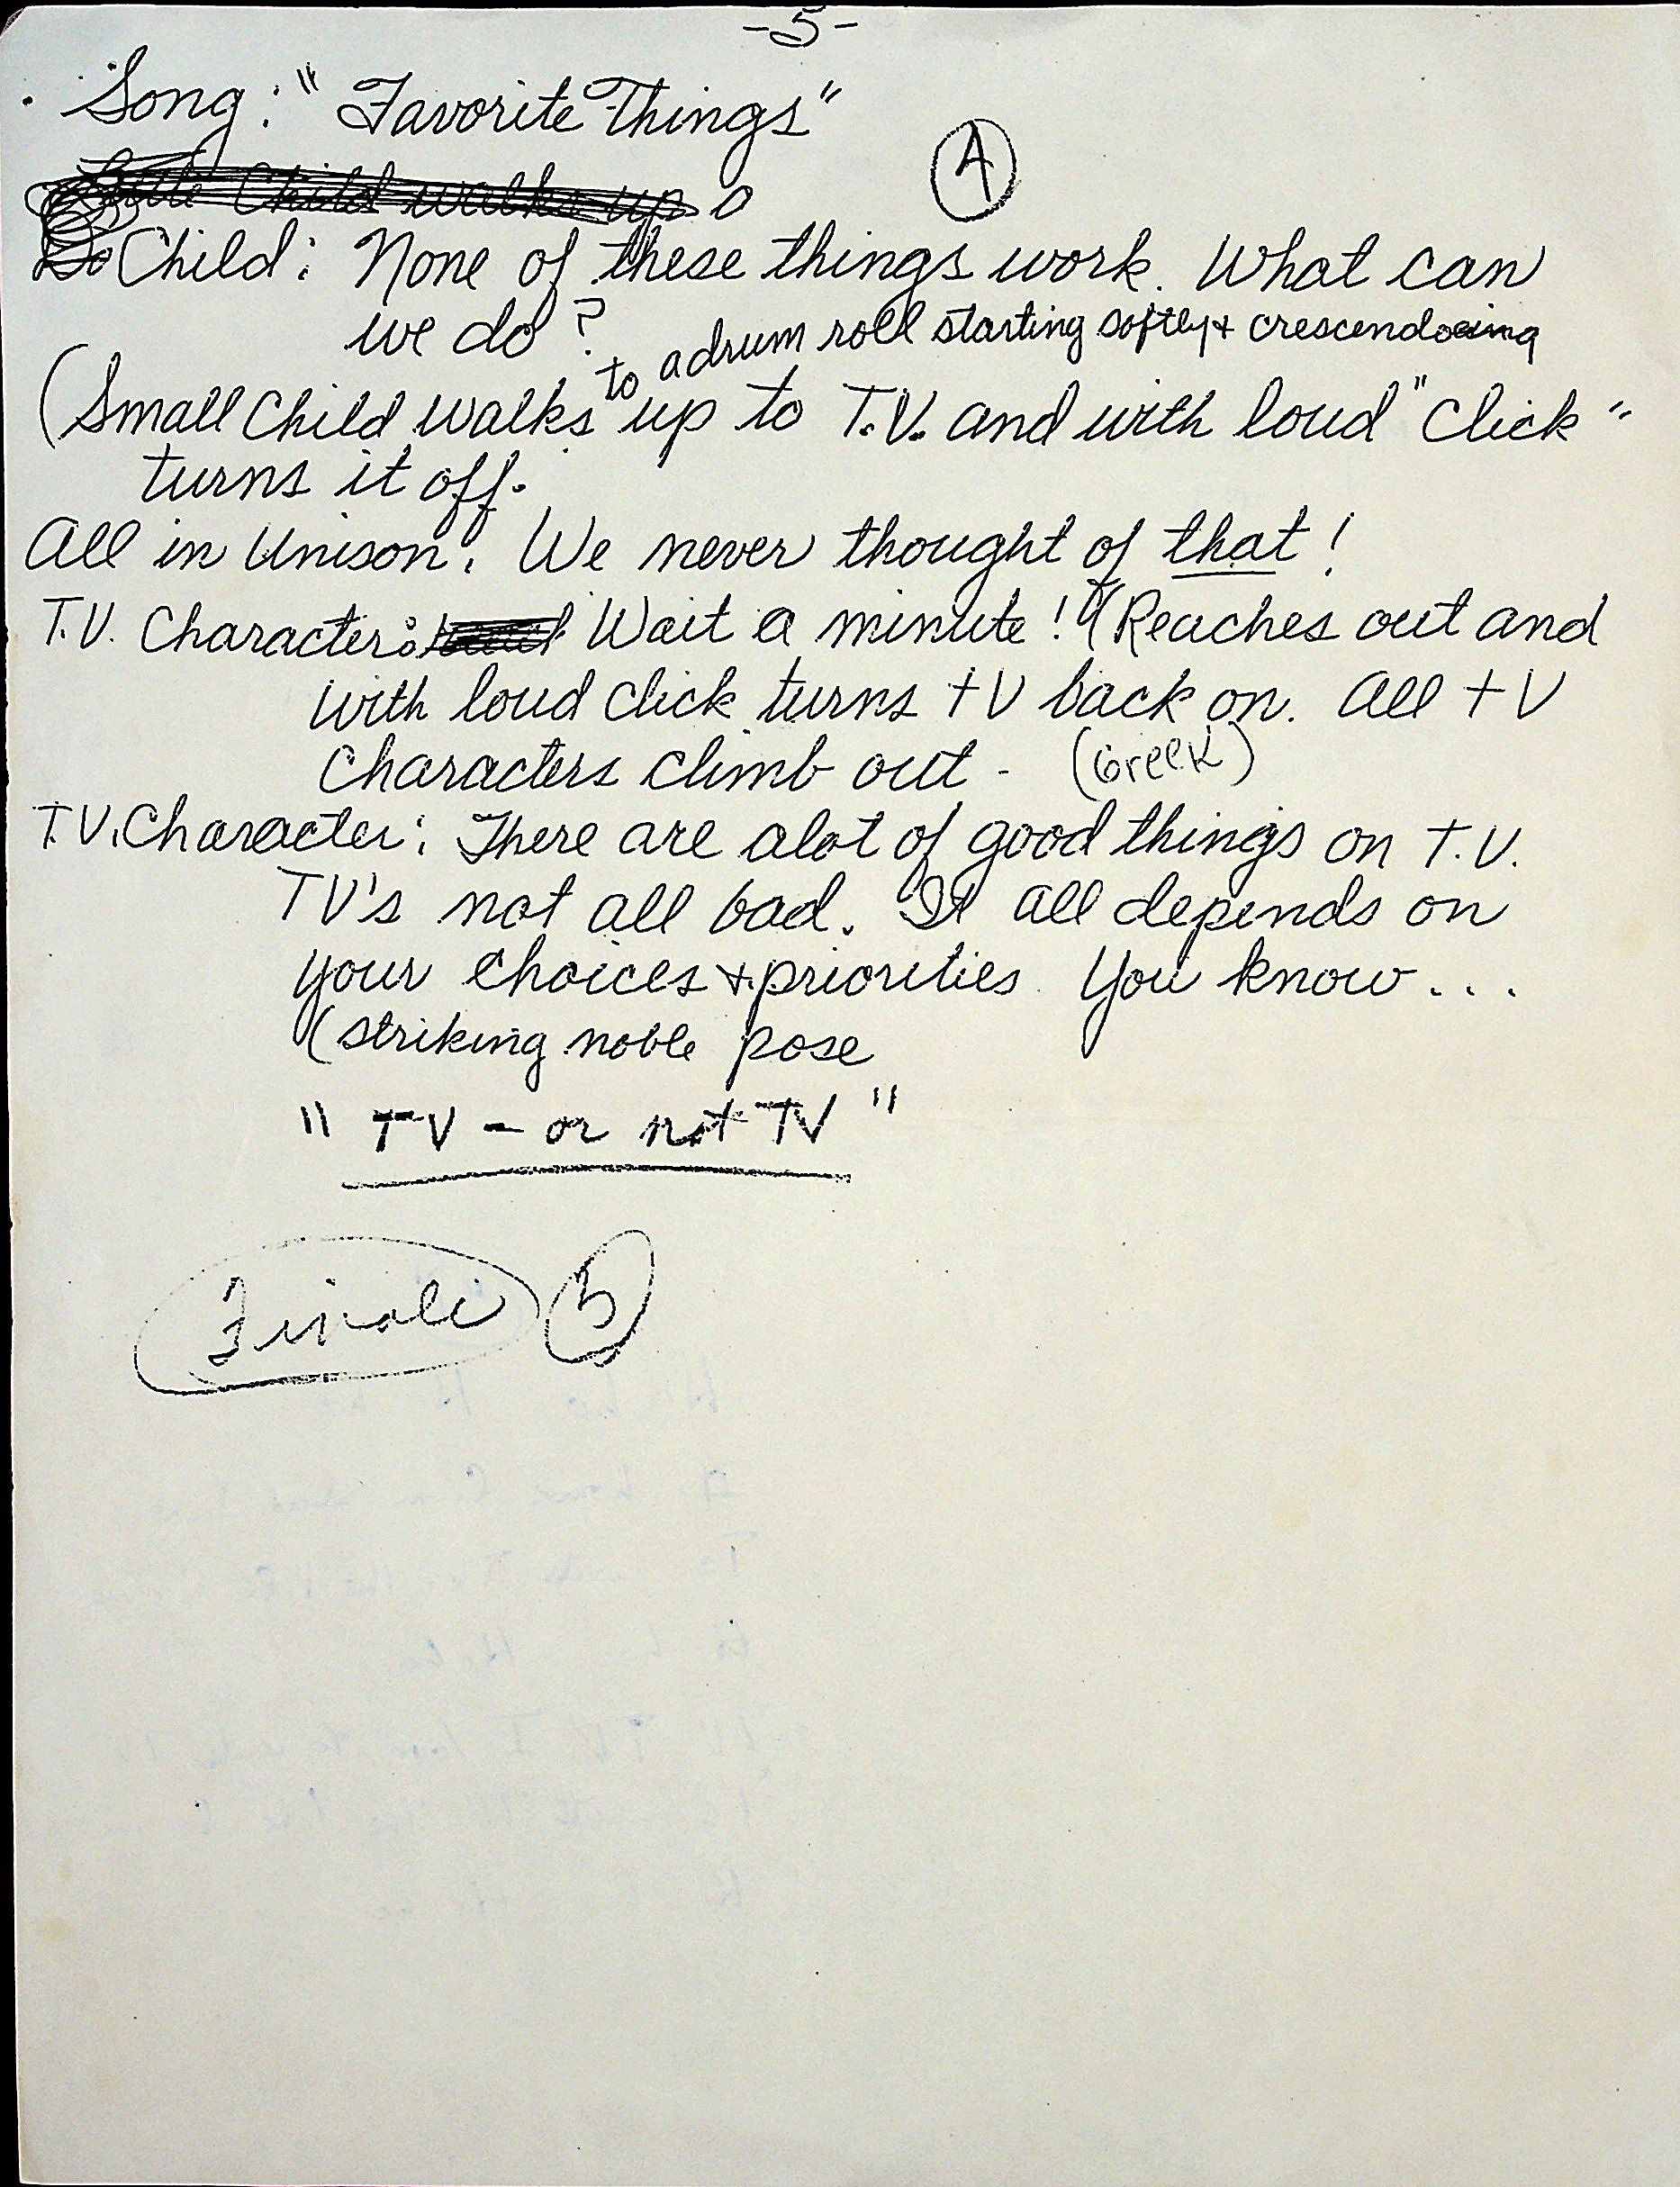 -5-
Song: "Favorite Things"
4
Little Child walks up
Child: None of these things work. What can
we do?
to a drum roll starting softly + crescendoeing
(Small Child walks up to T.V. and with loud "Click"
turns it off.
All in Unison: We never thought of that!
T.V. Character: Wait a minute! (Reaches out and
with loud click turns TV back on. All TV
Characters climb out - (Greek)
T.V. Character: There are alot of good things on T.V.
TV's not all bad. It all depends on
your choices + priorities. You know...
(striking noble pose
"TV - or not TV"
Finale 5